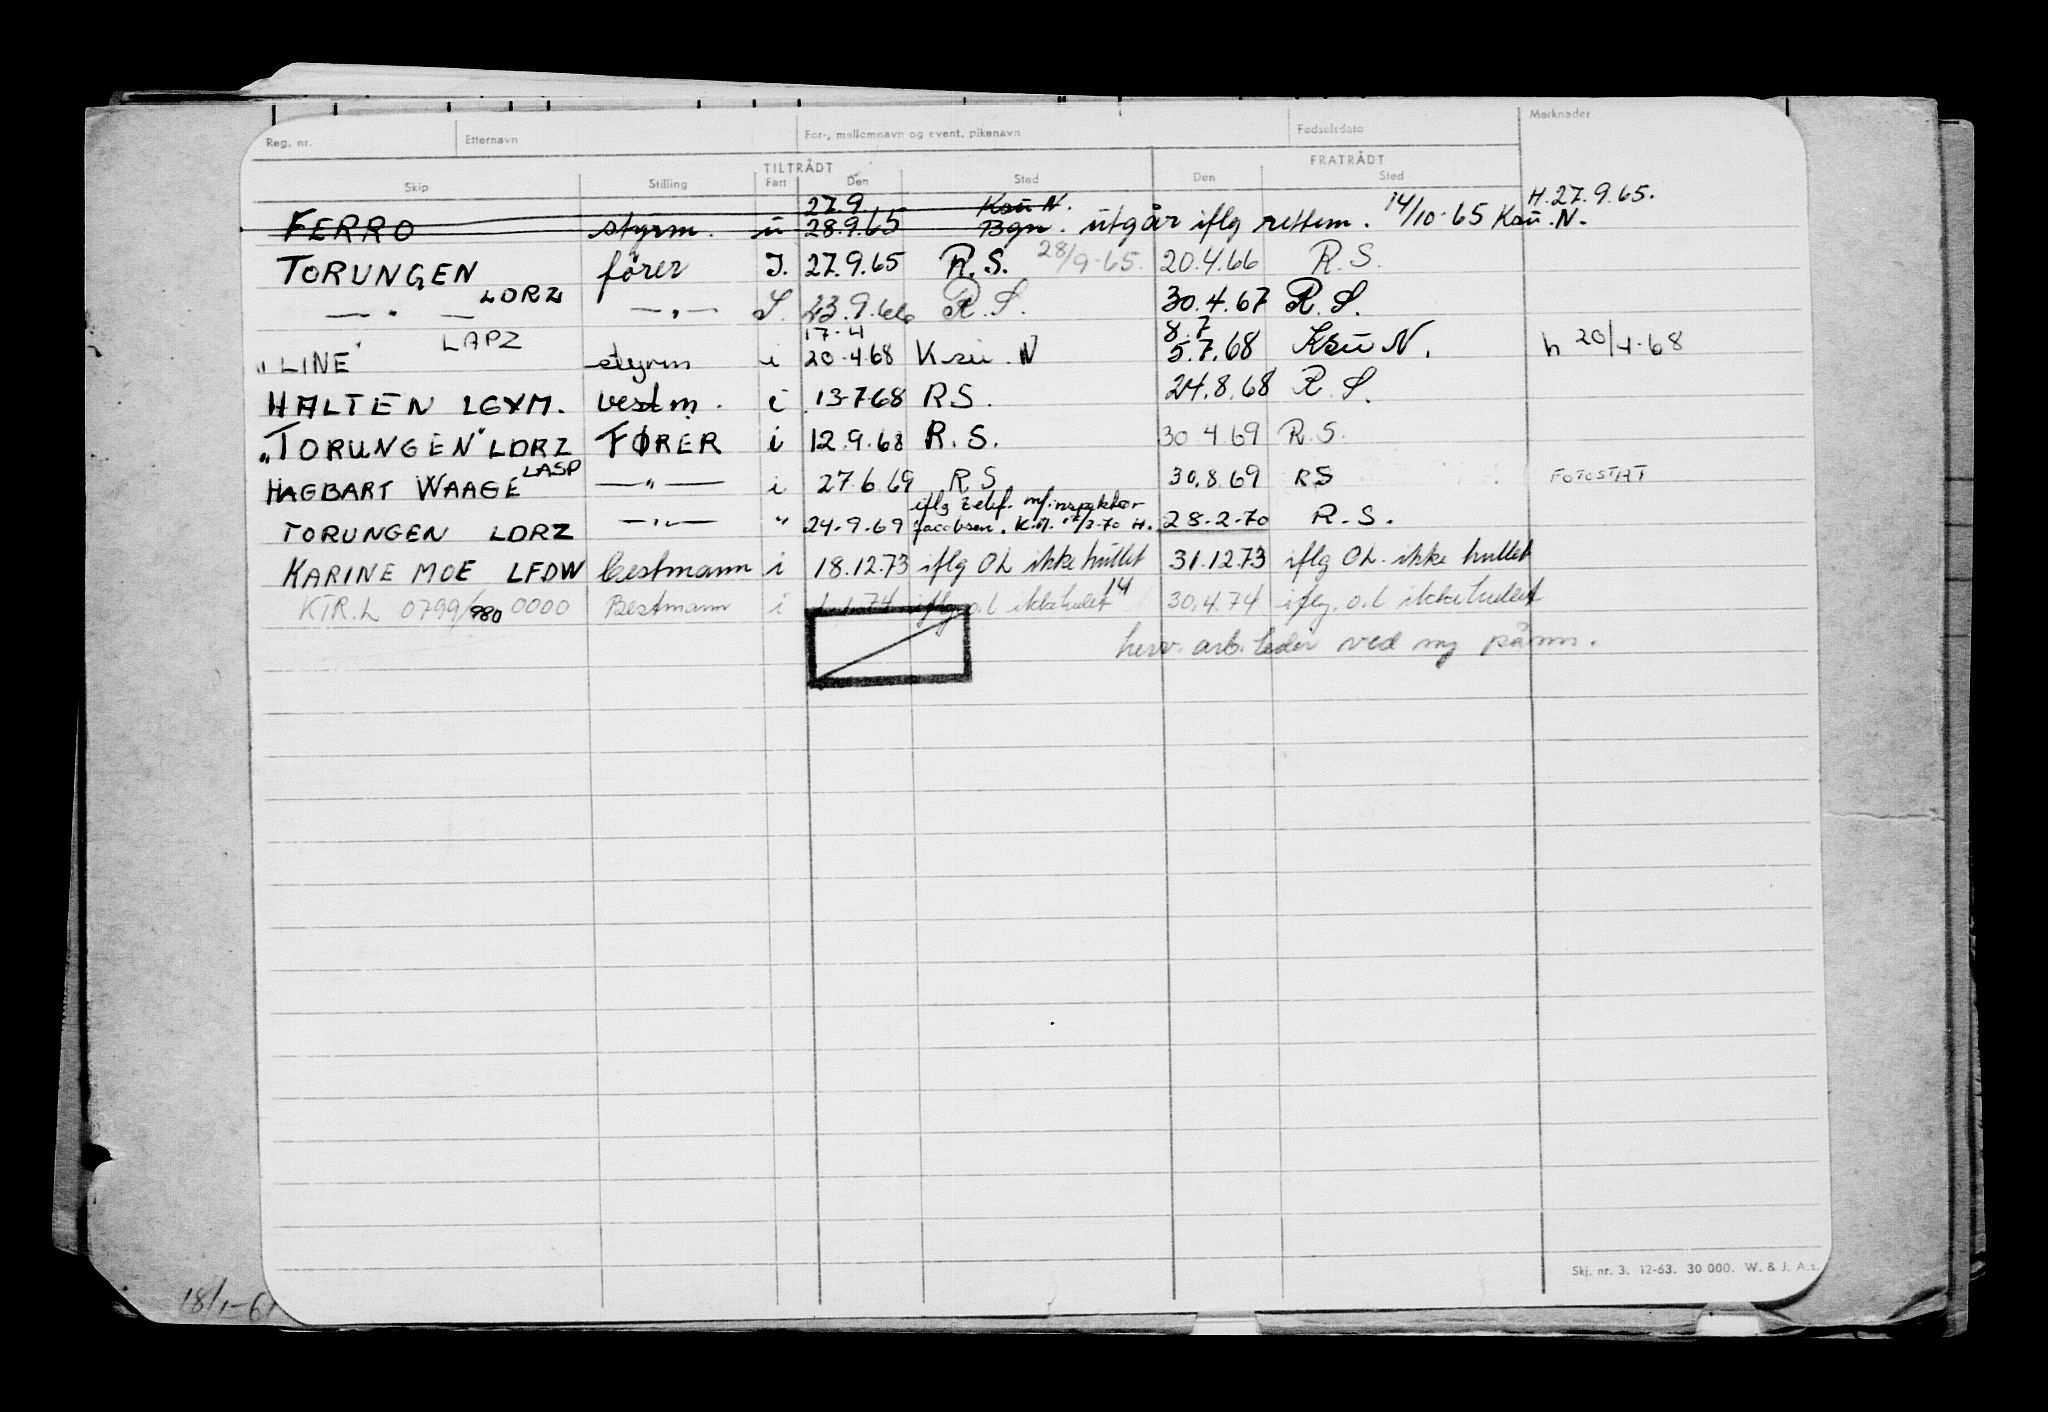 Reg. nr. Etternavn For-, mellomnavn og event. pikenavn Fødselsdato Merknader
TILTRÅDT FRATRÅDT
Skip Stilling Fart Den Sted Den Sted
27.9. Ksu N. H.27.9.65.
FERRO styrm. u 28.9.65 Bgn. utgår iflg rettem. 14/10-65 Ksu.N.
TORUNGEN fører I. 27.9.65 R.S. 28/9-65. 20.4.66 R.S.
— " — LDRZ — " — I. 23.9.66 R.S. 30.4.67 R.S.
LAPZ 17-4 8.7
"LINE" styrm i 20.4.68 Ksu.N 5.7.68 Ksu N. h 20/4-68
HALTEN LGXM. bestm. i 13-7-68 R.S. 24.8.68 R.S.
"TORUNGEN" LDRZ FØRER i 12.9.68 R.S. 30.4.69 R.S.
HAGBART WAAGE LASP — " — i 27.6.69 RS 30.8.69 RS FOTOSTAT
iflg telef. m/inspektør
TORUNGEN LDRZ — " — " 24-9.69 Jacobsen. 28-2-70 R.S.
KARINE MOE LFDW bestmann i 18.12.73 iflg OL ikke hullet 31.12.73 iflg OL. ikke hullet
KTR.L 0799/980 0000 Bestmann i 1.1.74 iflg. o.l ikke hulet 14 30.4.74 iflg. o.l ikke hullet
herv. arb. leder ved ny påmn.
Skj. nr. 3. 12-63. 30 000. W. & J. A.s.
18/1-61